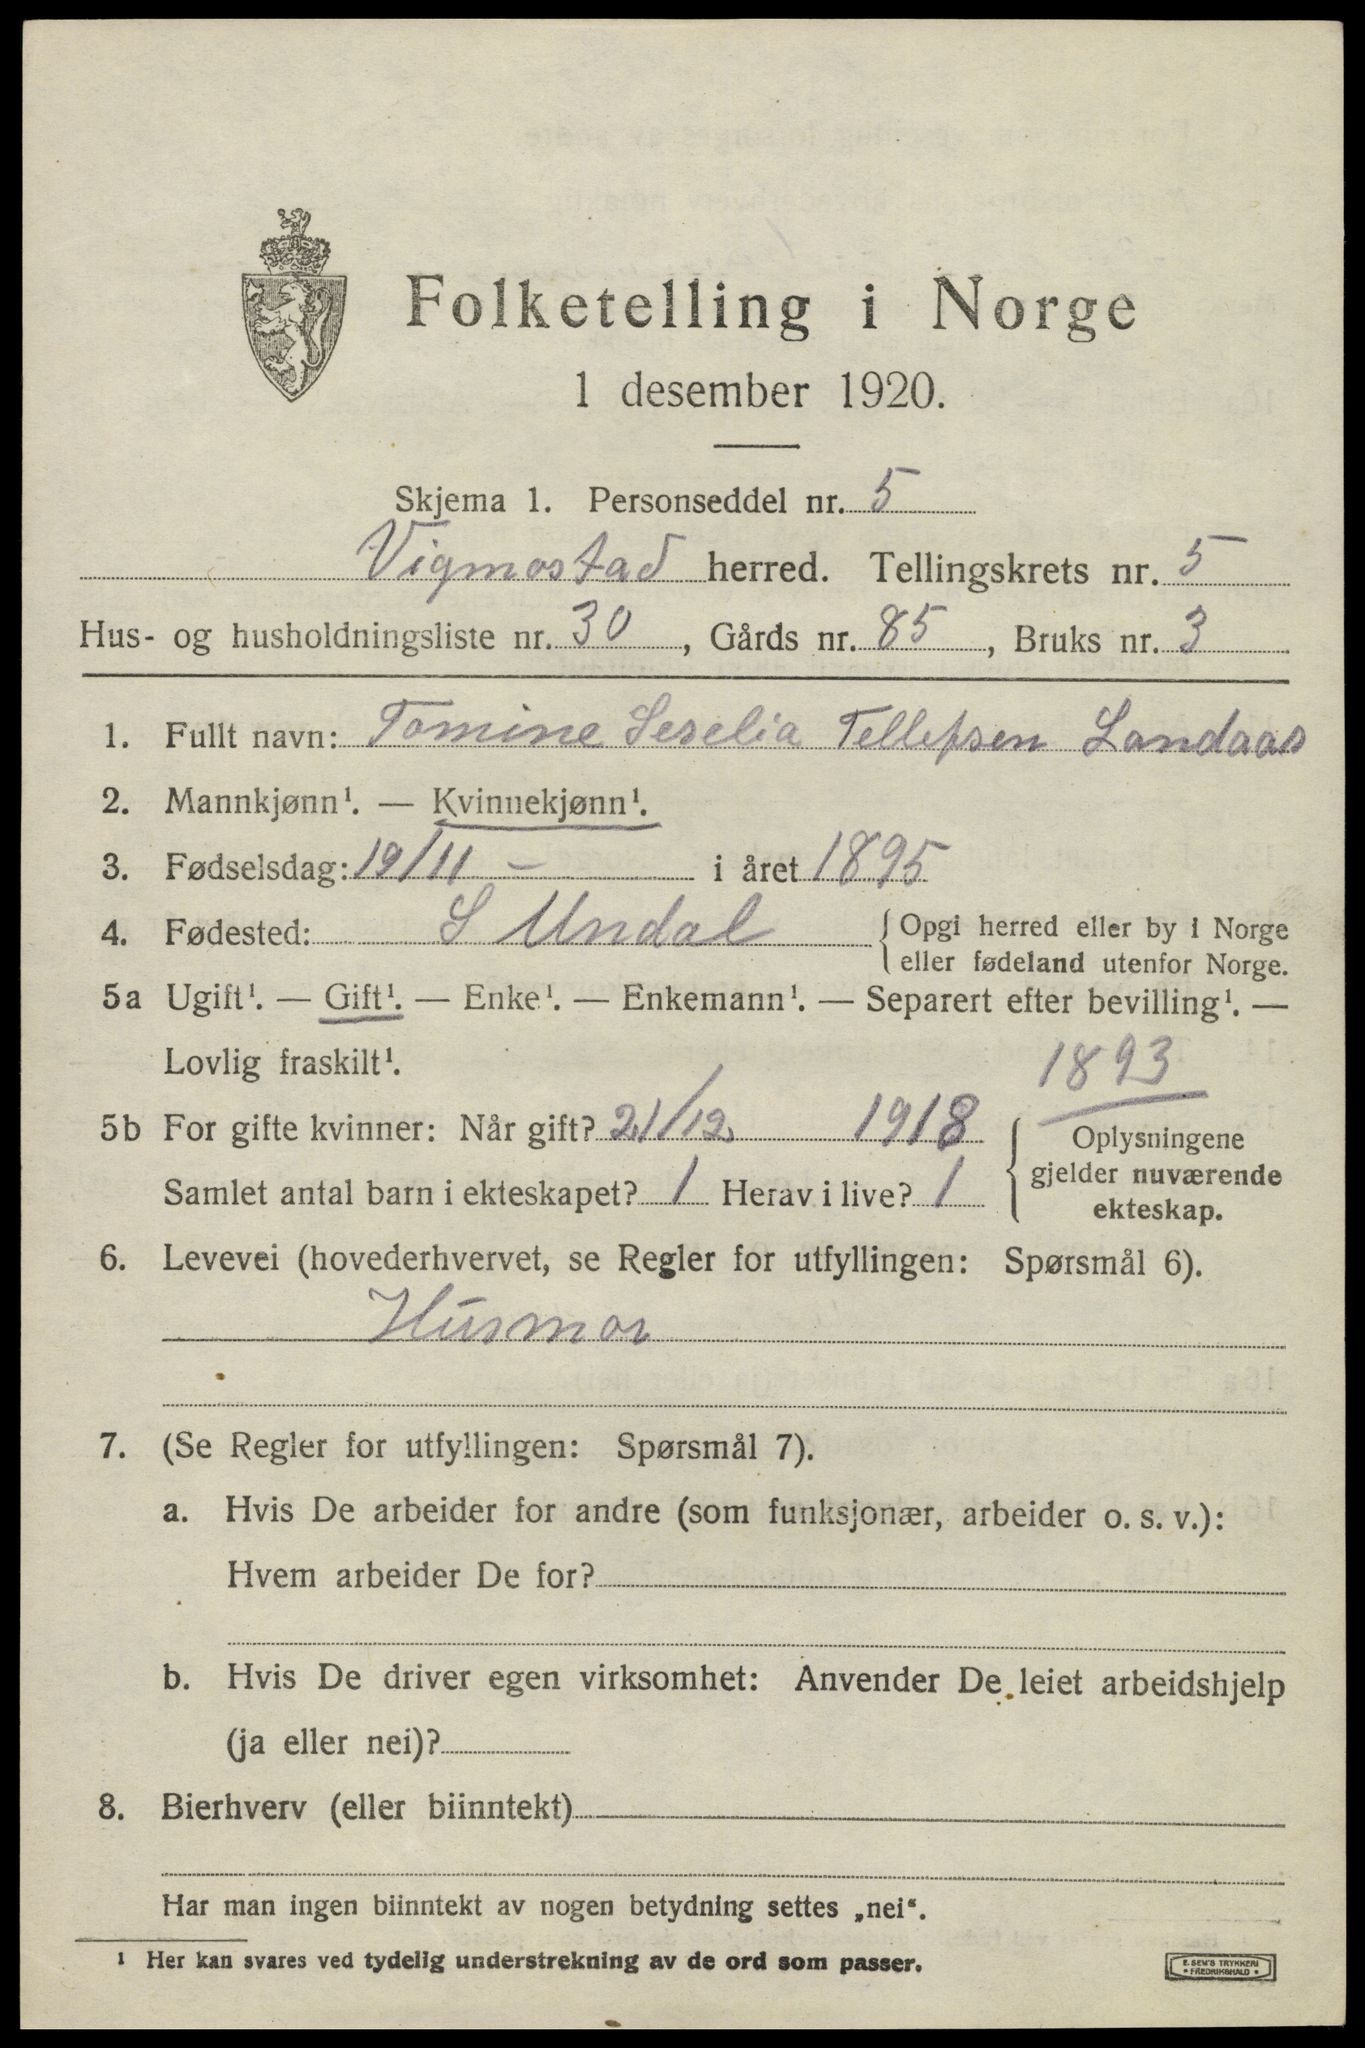 Folketelling i Norge
1 desember 1920.
Skjema 1. Personseddel nr. 5
Vigmostad herred. Tellingskrets nr. 5
Hus- og husholdningsliste nr. 30, Gårds nr. 85, Bruks nr. 3
1. Fullt navn: Tomine Seselia Tellefsen Landaas
2. Mannkjønn¹. — Kvinnekjønn¹.
3. Fødselsdag: 19/11 - i året 1895
4. Fødested: S Undal {Opgi herred eller by i Norge
eller fødeland utenfor Norge.
5a Ugift¹. — Gift¹. — Enke¹. — Enkemann¹. — Separert efter bevilling¹. —
Lovlig fraskilt¹.
1893
5b For gifte kvinner: Når gift? 21/12 1918
Samlet antal barn i ekteskapet? 1 Herav i live? 1
{Oplysningene
gjelder nuværende
ekteskap.
6. Levevei (hovederhvervet, se Regler for utfyllingen: Spørsmål 6).
Husmor
7. (Se Regler for utfyllingen: Spørsmål 7).
a. Hvis De arbeider for andre (som funksjonær, arbeider o. s. v.):
Hvem arbeider De for?
b. Hvis De driver egen virksomhet: Anvender De leiet arbeidshjelp
(ja eller nei)?
8. Bierhverv (eller biinntekt)
Har man ingen biinntekt av nogen betydning settes „nei“.
¹ Her kan svares ved tydelig understrekning av de ord som passer.
E. SEM'S TRYKKERI
• FREDRIKSHALD •